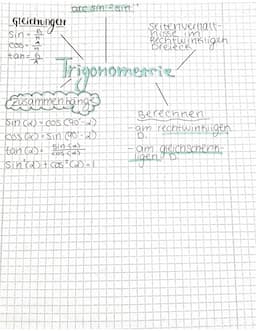 Gleichungen
sin =
cos =
tan =
Seitenverhält-
nisse im
Rechtwinkligen
Dreieck
Trigonometrie
Zusammenhänge
Sin (α) = cos (90°-α)
cos (α) = sin (90°-α)
tan (α) = sin(α)/cos(α)
Sin²(α) + cos²(α) = 1
Berechnen
- am rechtwinkligen
D.
- am gleichschenk-
ligen D.